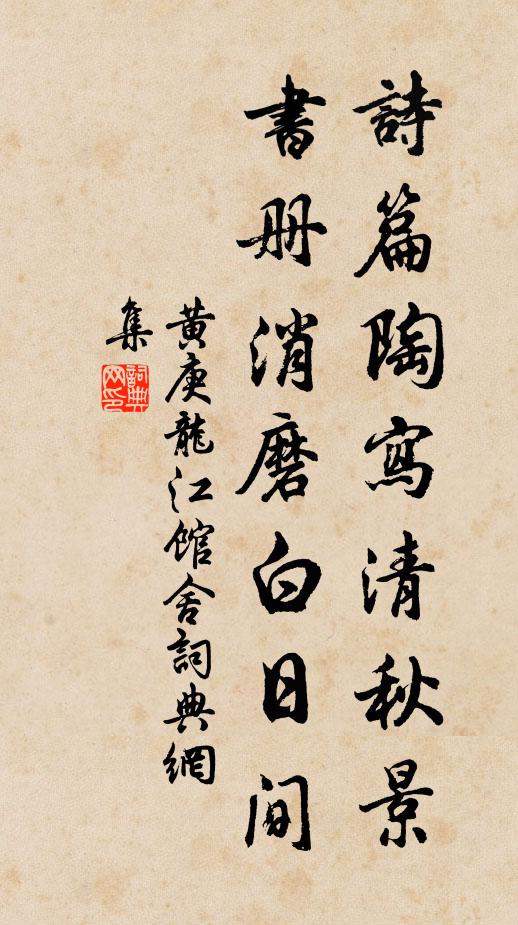 詩篇陶寫清秋景
書册消磨白日間
黄庚龍江館舍詞典網
集
詞典網印